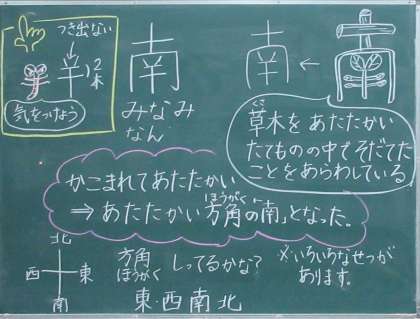 つき出ない
羊
2本
気をつけよう
南
みなみ
なん
南 ←
草木を あたたかい
くさ
たてものの中でそだてた
ことをあらわしている
かこまれてあたたかい
ほうがく
⇒ あたたかい方角の「南」となった。
北
西 東
南
方角 しってるかな?
ほうがく
東・西南北
※いろいろなせつが
あります。